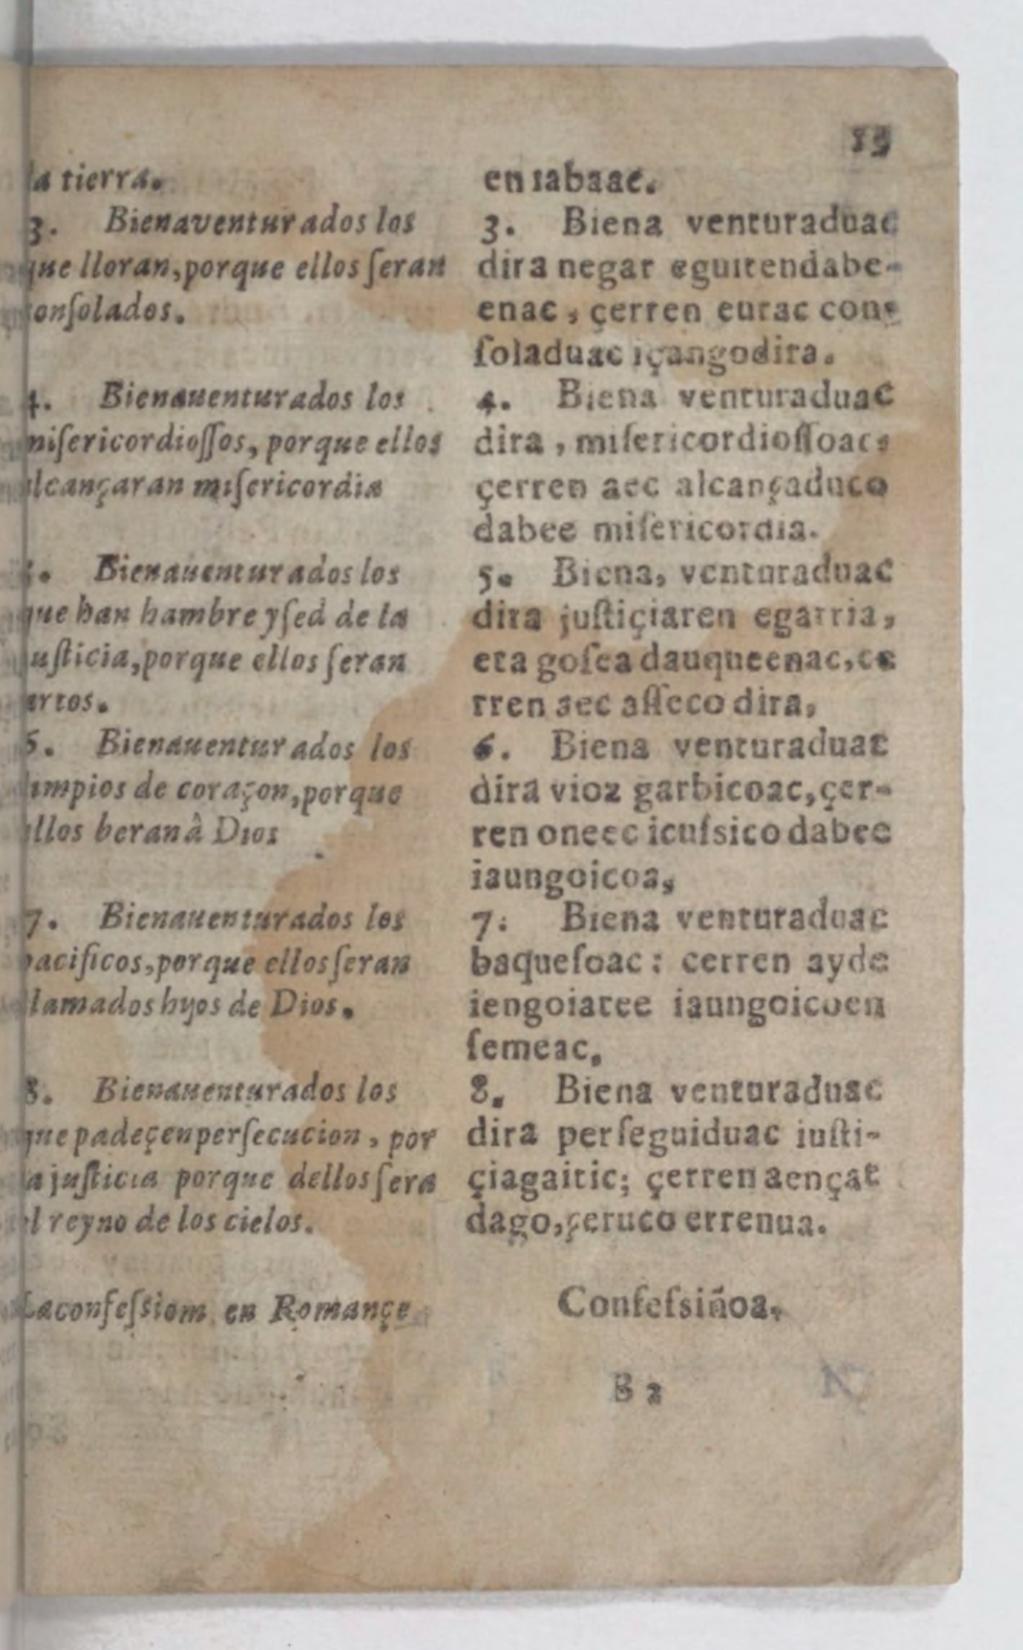 13
la tierra.
3. Bienaventurados los
que lloran, porque ellos ſeran
conſolados.
4. Bienauenturados los
miſericordioſſos, porque ellos
alcançaran miſericordia
5. Bienauenturados los
que han hambre y ſed de la
juſticia, porque ellos ſeran
artos.
6. Bienauenturados los
limpios de coraçon, porque
ellos beran â Dios
7. Bienauenturados los
pacificos, porque ellos ſeran
llamados hijos de Dios.
8. Bienauenturados los
que padeçen perſecucion, por
la juſticia porque dellos ſera
el reyno de los cielos.
La confeſsiom en Romançe
en iabaac.
3. Biena venturaduac
dira negar eguitendabe-
enac, çerren eurac con-
ſoladuac içangodira.
4. Biena venturaduac
dira, miſericordioſſoac,
çerren aec alcançaduco
dabee miſericordia.
5. Biena, venturaduac
dira juſtiçiaren egarria,
eta goſea dauqueenac, ce
rren aec aſſeco dira,
6. Biena venturaduac
dira vioz garbicoac, çer-
ren oneec icuſsico dabee
iaungoicoa,
7. Biena venturaduac
baqueſoac: cerren ayde
iengoiatee iaungoicoen
ſemeac,
8. Biena venturaduac
dira perſeguiduac iuſti-
çiagaitic; çerren aençat
dago, çeruco errenua.
Confeſsiñoa,
B 2